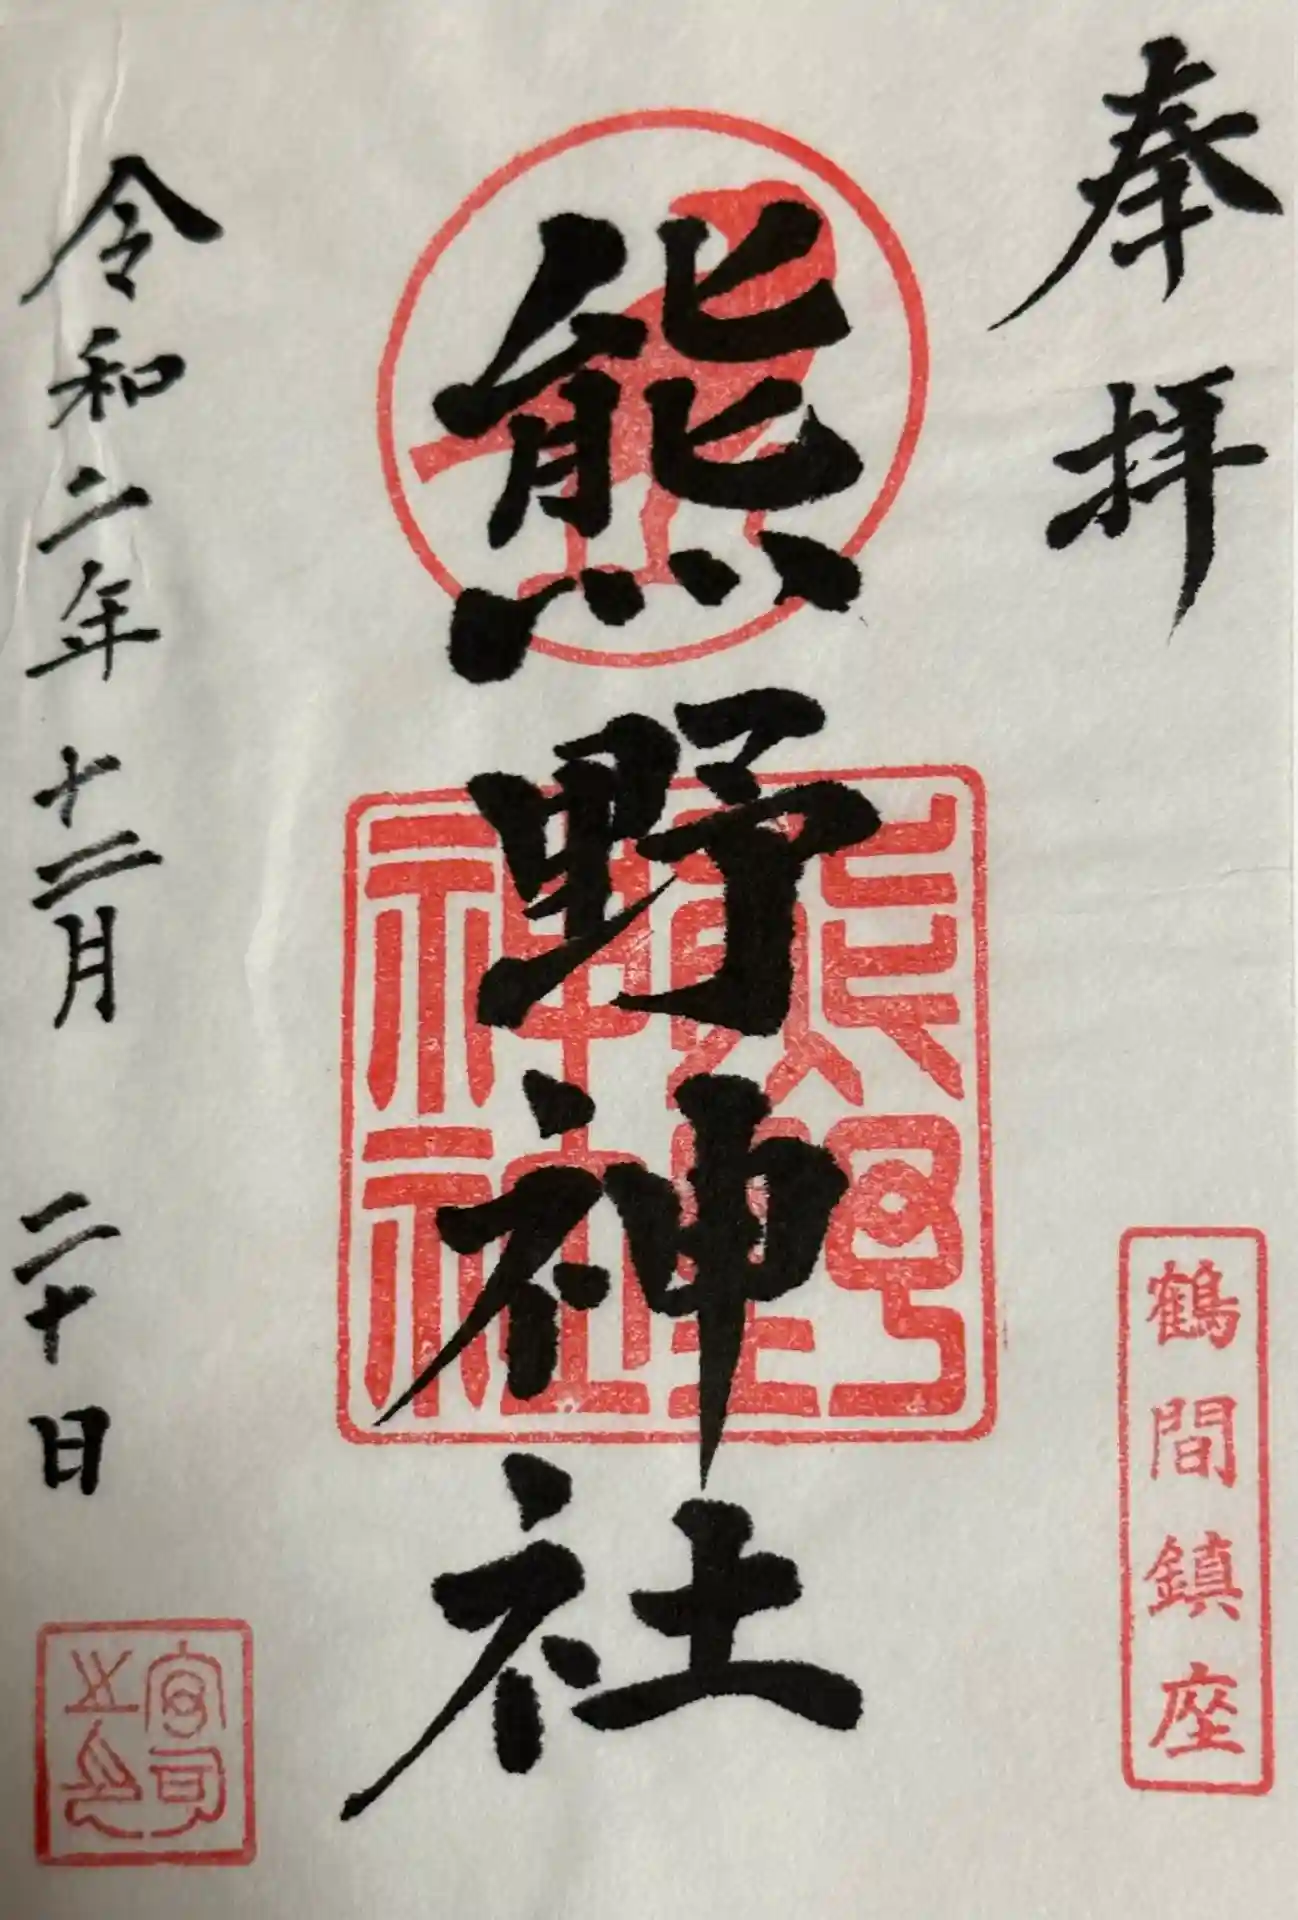 奉拝
鶴間鎮座
熊野神社
熊野
神社
令和二年十二月二十日
宮司
之印